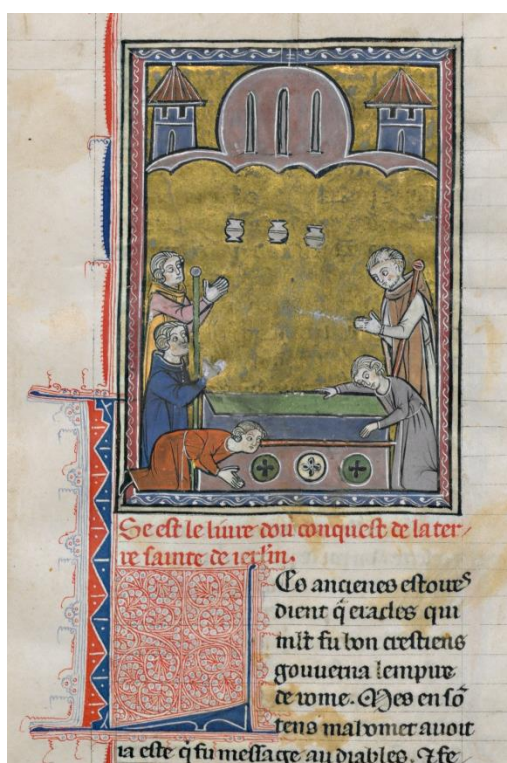 Se est le liure dou conquest de la ter
re sainte de ierl̄m.
Es ancienes estoires
dient q̄ eracles qui
ml̄t fu bon crestiens
gouuerna lempire
de rome. Mes en sō
tens mahomet auoit
ia este q̄ fu message au diables. Ife